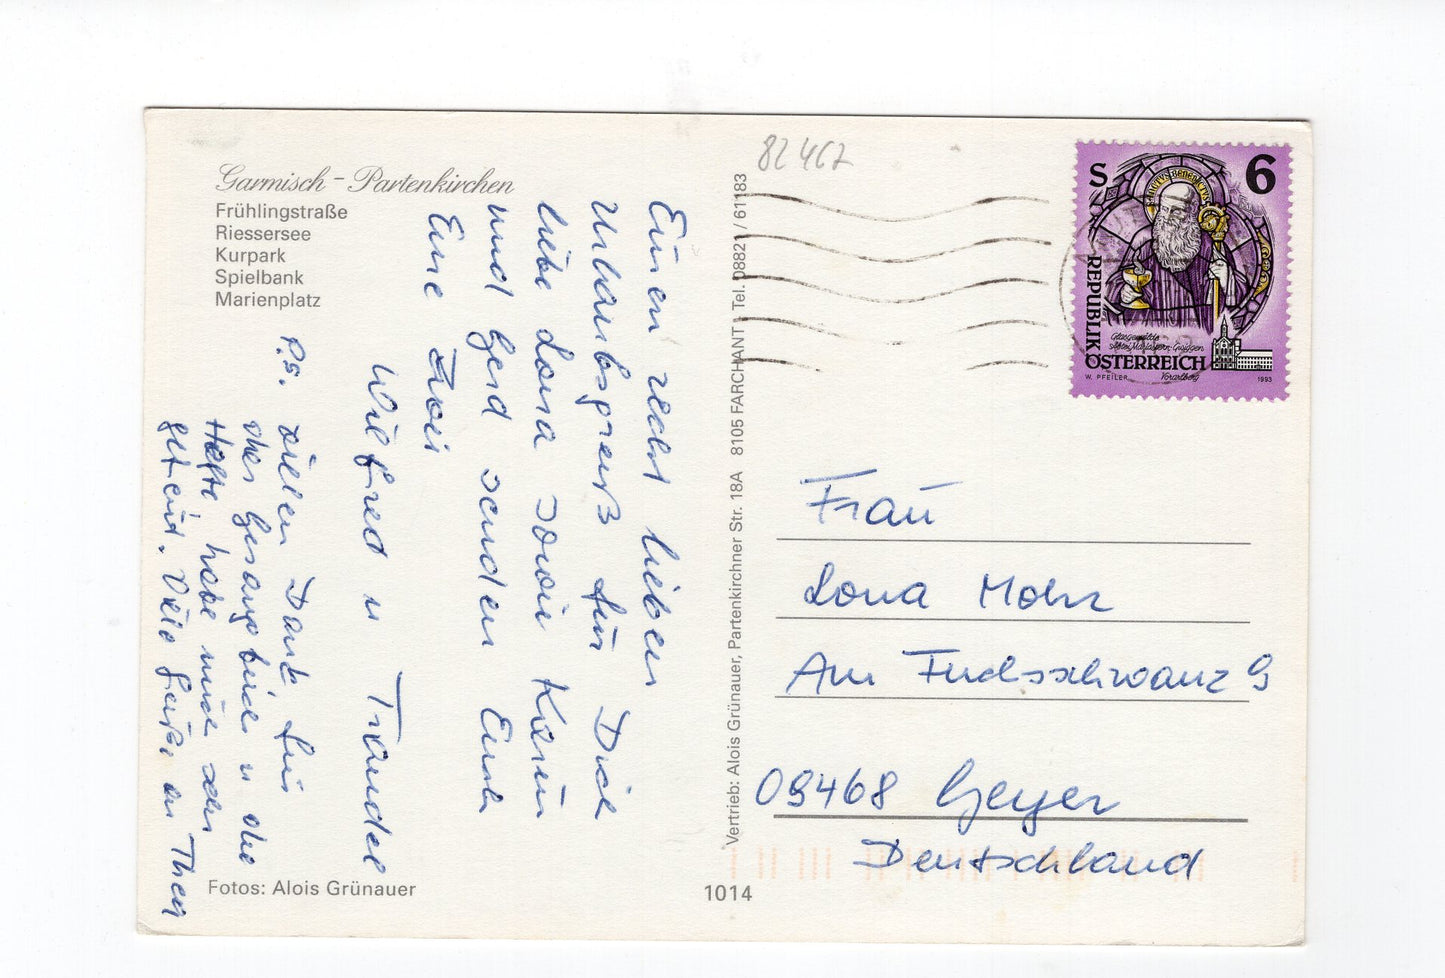 Garmisch - Partenkirchen
Frühlingstraße
Riessersee
Kurpark
Spielbank
Marienplatz
Einen recht lieben
Urlaubsgruß für Dich
liebe Lona sowie Karin
und Gerd senden Euch
Eure Zwei
Wilfred u Traudel
P.S. Vielen Dank für
das Gesangbuch u die
Hefte habe mich sehr
gefreut. Viele Grüße an Theo
Fotos: Alois Grünauer
Vertrieb: Alois Grünauer, Partenkirchner Str. 18A 8105 FARCHANT Tel. 08821 / 61183
1014
82467
S 6
SANCTVS BENEDICTVS
REPUBLIK
ÖSTERREICH
Glasgemälde
Abtei Mariastern-Gwiggen
Vorarlberg
W. PFEILER
1993
Frau
Lona Mohr
Am Fuchsschwanz 9
09468 Geyer
Deutschland